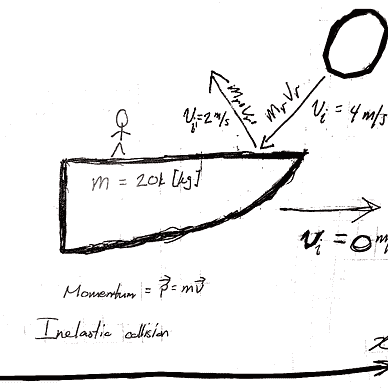 mᵣVᵣ
mᵣVᵣ
Vᵢ = 4 m/s
m = 20k [kg]
Vᵢ = 0 m/
Momentum = p⃗ = mv⃗
Inelastic collision
x